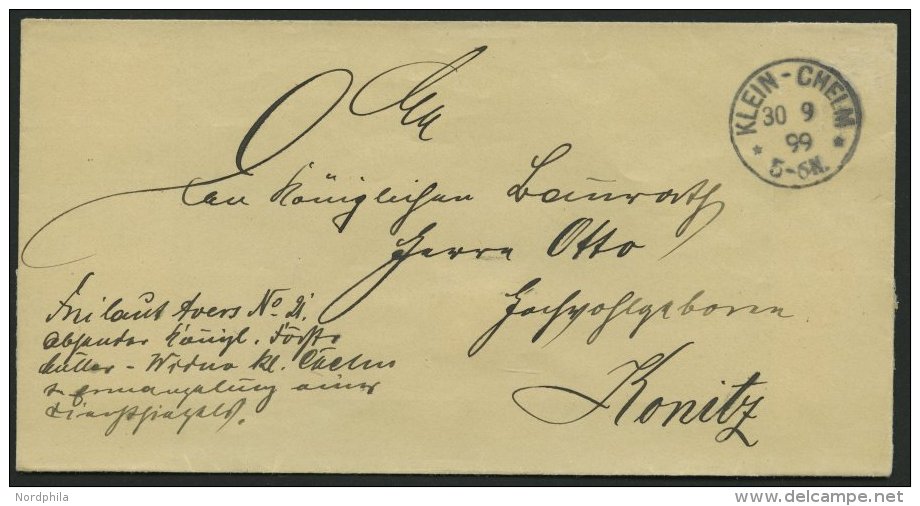 KLEIN-CHELM
30 9
99
5-6N.
An
den Königlichen Baurath
Herrn Otto
Hochwohlgeboren
Konitz
Frei laut Avers No 21.
Absender Königl. Förster
Müller - kl. Chelm
in Ermangelung eines
Dienstsiegels.
Nordphila
delcampe.net